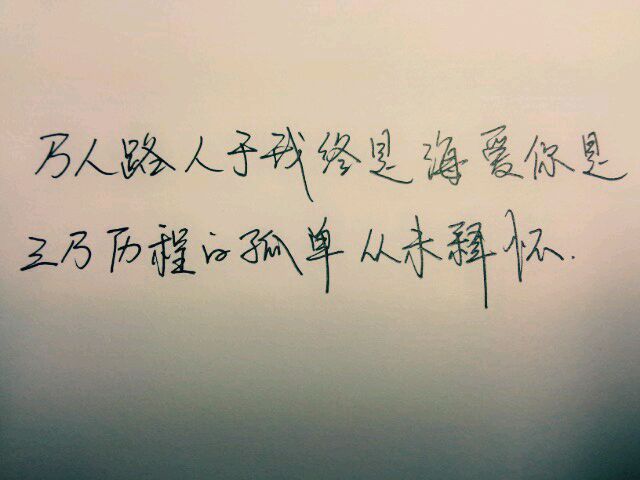 万人路人于我终是海爱你是
三万历程的孤单从未释怀.